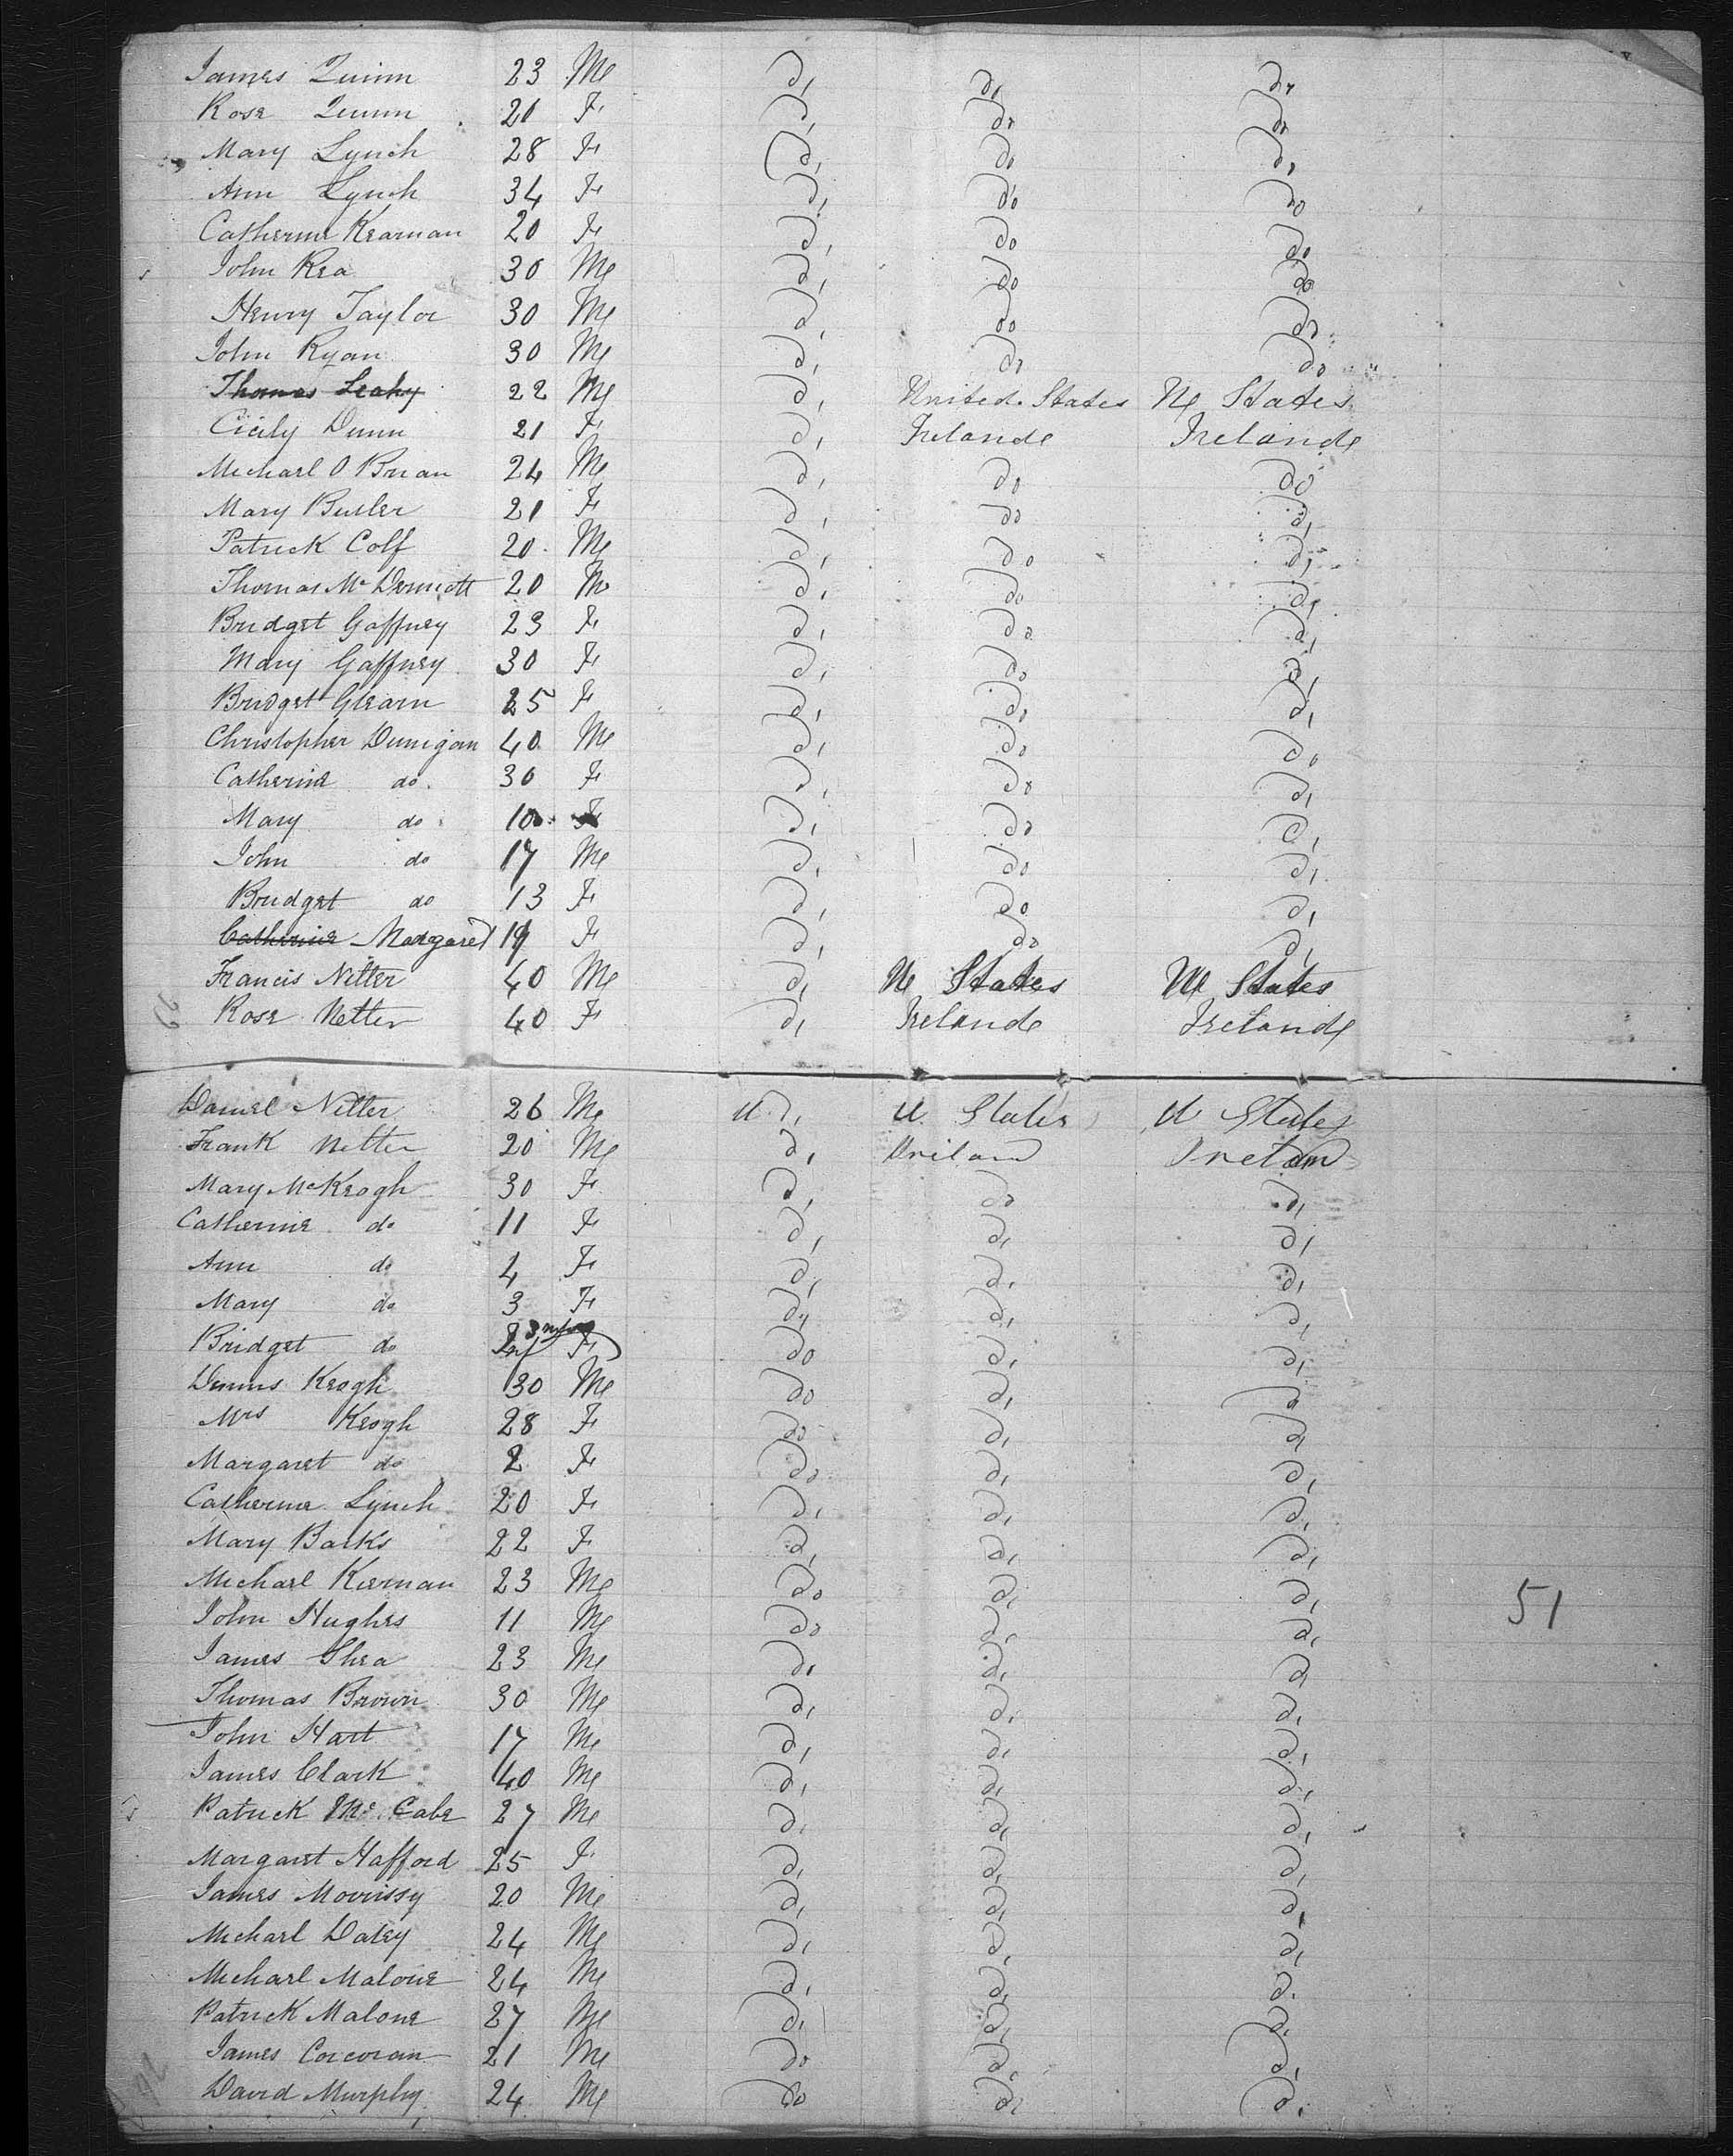 James Quinn 23 M do do do
Rose Quinn 20 F do do do
Mary Lynch 28 F do do do
Ann Lynch 34 F do do do
Catherine Kearnan 20 F do do do
John Rea 30 M do do do
Henry Taylor 30 M do do do
John Ryan 30 M do do do
Thomas Leahy 22 M do United States U States
Cicily Dunn 21 F do Ireland Ireland
Michael O Brian 24 M do do do
Mary Butler 21 F do do do
Patrick Colf 20 M do do do
Thomas Mc Dermott 20 M do do do
Bridget Gaffney 23 F do do do
Mary Gaffney 30 F do do do
Bridget Glearn 25 F do do do
Christopher Dunigan 40 M do do do
Catherine do 30 F do do do
Mary do 10 F do do do
John do 17 M do do do
Bridget do 13 F do do do
Catherine Margaret 19 F do do do
Francis Netter 40 M do U States U States
Rose Netter 40 F do Ireland Ireland
Daniel Netter 26 M do U States U States
Frank Netter 20 M do Ireland Ireland
Mary McKeogh 30 F do do do
Catherine do 11 F do do do
Ann do 4 F do do do
Mary do 3 F do do do
Bridget do Inf F do do do
Dennis Keogh 30 M do do do
Mrs Keogh 28 F do do do
Margaret do 2 F do do do
Catherine Lynch 20 F do do do
Mary Barks 22 F do do do
Michael Kiernan 23 M do do do
John Hughes 11 M do do do
51
James Shea 23 M do do do
Thomas Brown 30 M do do do
John Hart 17 M do do do
James Clark 40 M do do do
Patrick Mc Cabe 27 M do do do
Margaret Hafford 25 F do do do
James Morrissy 20 M do do do
Michael Daley 24 M do do do
Michael Malone 24 M do do do
Patrick Malone 27 M do do do
James Corcoran 21 M do do do
David Murphy 24 M do do do